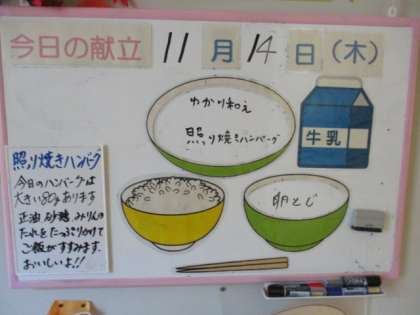 今日の献立 11月14日(木)
ゆかり和え
照り焼きハンバーグ
牛乳
照り焼きハンバーグ
今日のハンバーグは
大きい80gあります
正油 砂糖 みりんの
たれをたっぷりかけて
ご飯がすすみます。
おいしいよ!!
卵とじ